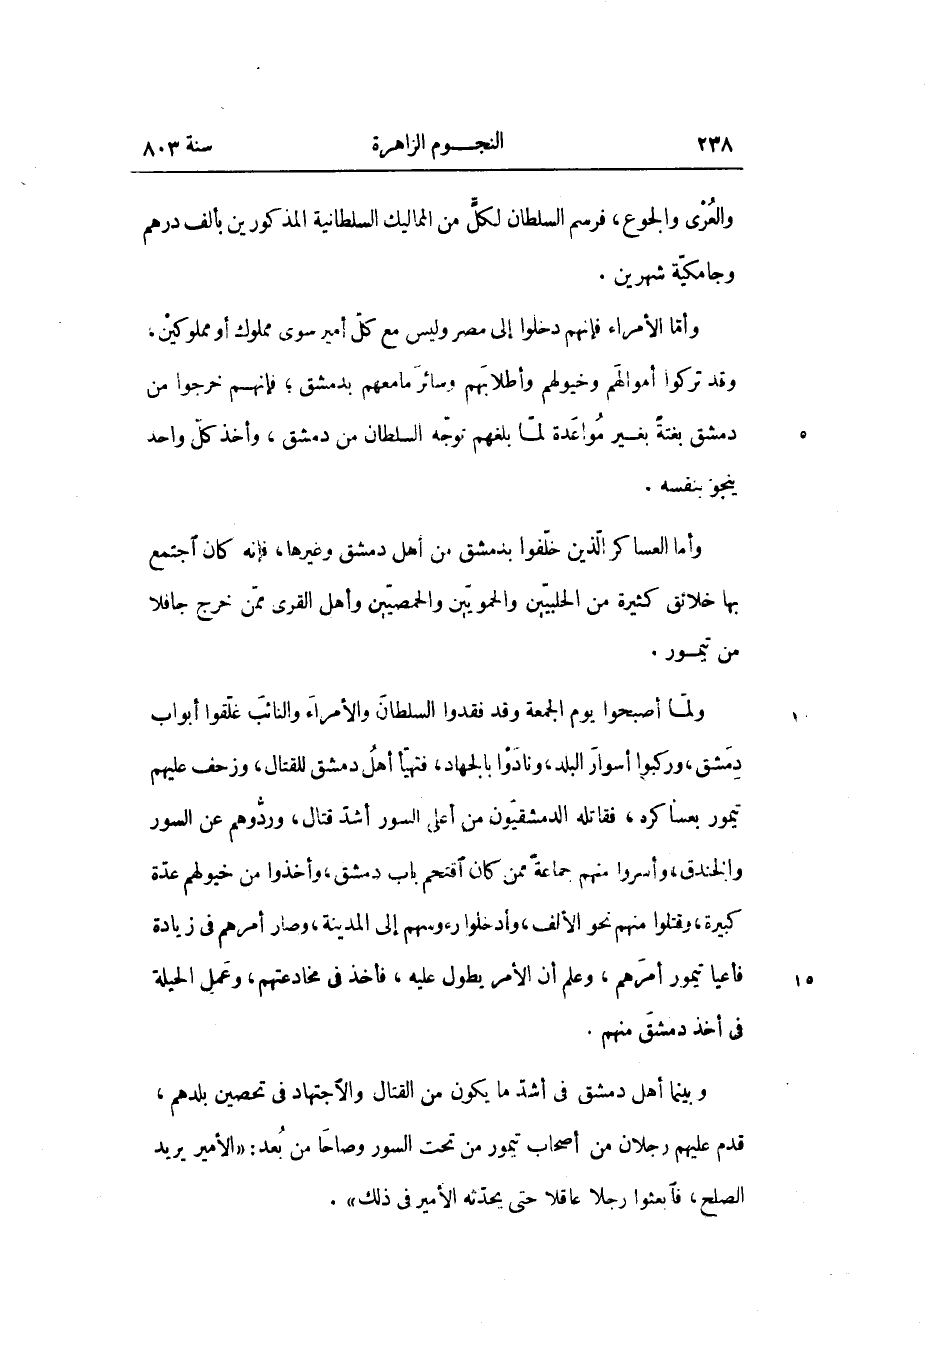 ٢٣٨ النجـــوم الزاهرة سنة ٨٠٣
والعُرْى والجوع، فرسم السلطان لكلٍّ من المماليك السلطانية المذكورين بألف درهم
وجامكيّة شهرين .
وأمّا الأمراء فإنهم دخلوا إلى مصر وليس مع كلّ أمير سوى مملوك أو مملوكيْن،
وقد تركوا أموالَهم وخيولهم وأطلابَهم وسائرَ مامعهم بدمشق ؛ فإنهــم خرجوا من
دمشق بغتةً بغــير مُواعَدة لمّــا بلغهم توجّه السلطان من دمشق ، وأخذ كلّ واحد ٥
ينجو بنفسه .
وأما العساكر الّذين خلّفوا بدمشق من أهل دمشق وغيرها، فإنه كان ٱجتمع
بها خلائق كثيرة من الحلبيّين والحمويّين والحمصيّين وأهل القرى ممّن خرج جافلا
من تَيمــور .
ولمّــا أصبحوا يوم الجمعة وقد فقدوا السلطانَ والأمراءَ والنائبَ غلّقوا أبواب ١٠
دِمَشق ،وركبوا أسوارَ البلد،ونادَوْا بالجهاد، فتهيّأ أهلُ دمشق للقتال، وزحف عليهم
تَيمور بعساكره ، فقاتله الدمشقيّون من أعلى السور أشدّ قتال، وردُّوهم عن السور
والخندق،وأسروا منهم جماعةً ممن كان ٱقتحم باب دمشق،وأخذوا من خيولهم عدّة
كبيرة،وقتلوا منهم نحو الألف،وأدخلوا رءوسهم إلى المدينة،وصار أمرهم فى زيادة
فأعيا تيمور أمرَهم ، وعلم أن الأمر يطول عليه ، فأخذ فى مخادعتهم، وعَمِل الحيلة ١٥
فى أخذ دمشقَ منهم .
وبينما أهل دمشق فى أشدّ ما يكون من القتال والٱجتهاد فى تحصين بلدهم ،
قدم عليهم رجلان من أصحاب تيمور من تحت السور وصاحَا من بُعد: «الأمير يريد
الصلح، فٱبعثوا رجلا عاقلا حتى يحدّثه الأمير فى ذلك» .